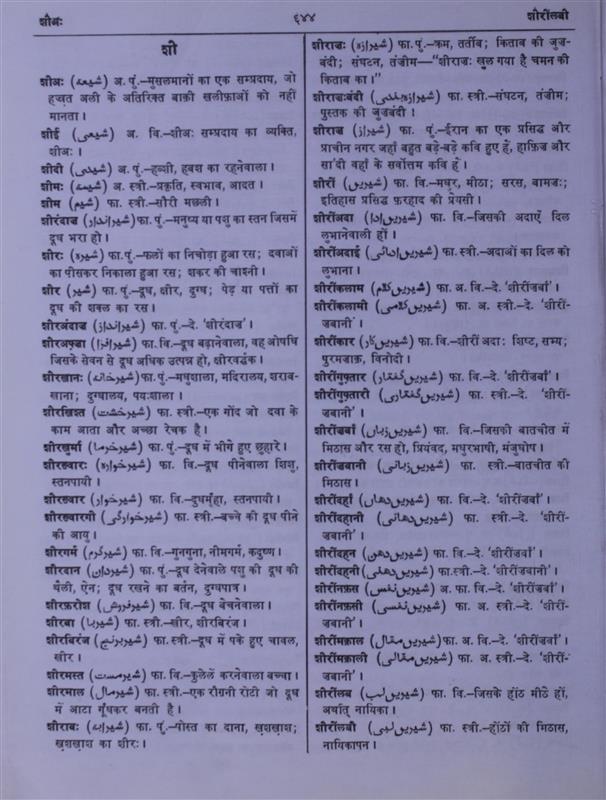 शीअः
६४४
शीरींलबी
शी
शीअः (شیعہ) अ. पुं.–मुसलमानों का एक सम्प्रदाय, जो
हज़्रत अली के अतिरिक्त बाक़ी खलीफ़ाओं को नहीं
मानता।
शीई (شیعی) अ. वि.–शीअः सम्प्रदाय का व्यक्ति,
शीअः।
शीदी (شیدی) अ. पुं.–हब्शी, हबश का रहनेवाला।
शीमः (شیمہ) अ. स्त्री.–प्रकृति, स्वभाव, आदत।
शीम (شیم) फा. स्त्री.–सौरी मछली।
शीरंदाज़ (شیرانداز) फा. पुं.–मनुष्य या पशु का स्तन जिसमें
दूध भरा हो।
शीरः (شیرہ) फा. पुं.–फलों का निचोड़ा हुआ रस; दवाओं
का पीसकर निकाला हुआ रस; शकर की चाश्नी।
शीर (شیر) फा. पुं.–दूध, क्षीर, दुग्ध; पेड़ या पत्तों का
दूध की शक्ल का रस।
शीरअंदाज़ (شیرانداز) फा. पुं.–दे. 'शीरंदाज़'।
शीरअफ़्ज़ा (شیرافزا) फा. वि.–दूध बढ़ानेवाला, वह ओषधि
जिसके सेवन से दूध अधिक उत्पन्न हो, क्षीरवर्द्धक।
शीरखानः (شیرخانہ) फा. पुं.–मधुशाला, मदिरालय, शराब-
खाना; दुग्धालय, पयःशाला।
शीरखिश्त (شیرخشت) फा. स्त्री.–एक गोंद जो दवा के
काम आता और अच्छा रेचक है।
शीरखुर्मा (شیرخرما) फा. पुं.–दूध में भीगे हुए छुहारे।
शीरख्वारः (شیرخوارہ) फा. वि.–दूध पीनेवाला शिशु,
स्तनपायी।
शीरख्वार (شیرخوار) फा. वि.–दुधमुँहा, स्तनपायी।
शीरख्वारगी (شیرخوارگی) फा. स्त्री.–बच्चे की दूध पीने
की आयु।
शीरगर्म (شیرگرم) फा. वि.–गुनगुना, नीमगर्म, कदुष्ण।
शीरदान (شیردان) फा. पुं.–दूध देनेवाले पशु की दूध की
थैली, ऐन; दूध रखने का बर्तन, दुग्धपात्र।
शीरफ़रोश (شیرفروش) फा. वि.–दूध बेचनेवाला।
शीरबा (شیربا) फा. स्त्री.–खीर, शीरबिरंज।
शीरबिरंज (شیربرنج) फा. स्त्री.–दूध में पके हुए चावल,
खीर।
शीरमस्त (شیرمست) फा. वि.–कुलेलें करनेवाला बच्चा।
शीरमाल (شیرمال) फा. स्त्री.–एक रौग़नी रोटी जो दूध
में आटा गूँधकर बनती है।
शीराबः (شیرابہ) फा. पुं.–पोस्त का दाना, खशखाश;
खशखाश का शीरः।
शीराज़ः (شیرازہ) फा. पुं.–क्रम, तर्तीब; किताब की जुज़-
बंदी; संघटन, तंज़ीम–"शीराज़ः खुल गया है चमन की
किताब का।"
शीराज़ःबंदी (شیرازہ بندی) फा. स्त्री.–संघटन, तंज़ीम;
पुस्तक की जुज़बंदी।
शीराज़ (شیراز) फा. पुं.–ईरान का एक प्रसिद्ध और
प्राचीन नगर जहाँ बहुत बड़े-बड़े कवि हुए हैं, हाफ़िज़ और
सा'दी वहाँ के सर्वोत्तम कवि हैं।
शीरीं (شیریں) फा. वि.–मधुर, मीठा; सरस, बामज़ः;
इतिहास प्रसिद्ध फ़रहाद की प्रेयसी।
शीरींअदा (شیریں ادا) फा. वि.–जिसकी अदाएँ दिल
लुभानेवाली हों।
शीरींअदाई (شیریں ادائی) फा. स्त्री.–अदाओं का दिल को
लुभाना।
शीरींकलाम (شیریں کلام) फा. अ. वि.–दे. 'शीरींज़बाँ'।
शीरींकलामी (شیریں کلامی) फा. अ. स्त्री.–दे. 'शीरीं-
ज़बानी'।
शीरींकार (شیریں کار) फा. वि.–शीरीं अदा; शिष्ट, सभ्य;
पुरमज़ाक़, विनोदी।
शीरींगुफ़्तार (شیریں گفتار) फा. वि.–दे. 'शीरींज़बाँ'।
शीरींगुफ़्तारी (شیریں گفتاری) फा. स्त्री.–दे. 'शीरीं-
ज़बानी'।
शीरींज़बाँ (شیریں زباں) फा. वि.–जिसकी बातचीत में
मिठास और रस हो, प्रियंवद, मधुरभाषी, मंजुघोष।
शीरींज़बानी (شیریں زبانی) फा. स्त्री.–बातचीत की
मिठास।
शीरींदहाँ (شیریں دهاں) फा. वि.–दे. 'शीरींज़बाँ'।
शीरींदहानी (شیریں دهانی) फा. स्त्री.–दे. 'शीरीं-
ज़बानी'।
शीरींदहन (شیریں دهن) फा. वि.–दे. 'शीरींज़बाँ'।
शीरींदहनी (شیریں دهنی) फा. स्त्री.–दे. 'शीरींज़बानी'।
शीरींनफ़स (شیریں نفس) अ. फा. वि.–दे. 'शीरींज़बाँ'।
शीरींनफ़सी (شیریں نفسی) फा. अ. स्त्री.–दे. 'शीरीं-
ज़बानी'।
शीरींमक़ाल (شیریں مقال) फा. अ. वि.–दे. 'शीरींज़बाँ'।
शीरींमक़ाली (شیریں مقالی) फा. अ. स्त्री.–दे. 'शीरीं-
ज़बानी'।
शीरींलब (شیریں لب) फा. वि.–जिसके होंठ मीठे हों,
अर्थात् नायिका।
शीरींलबी (شیریں لبی) फा. स्त्री.–होंठों की मिठास,
नायिकापन।